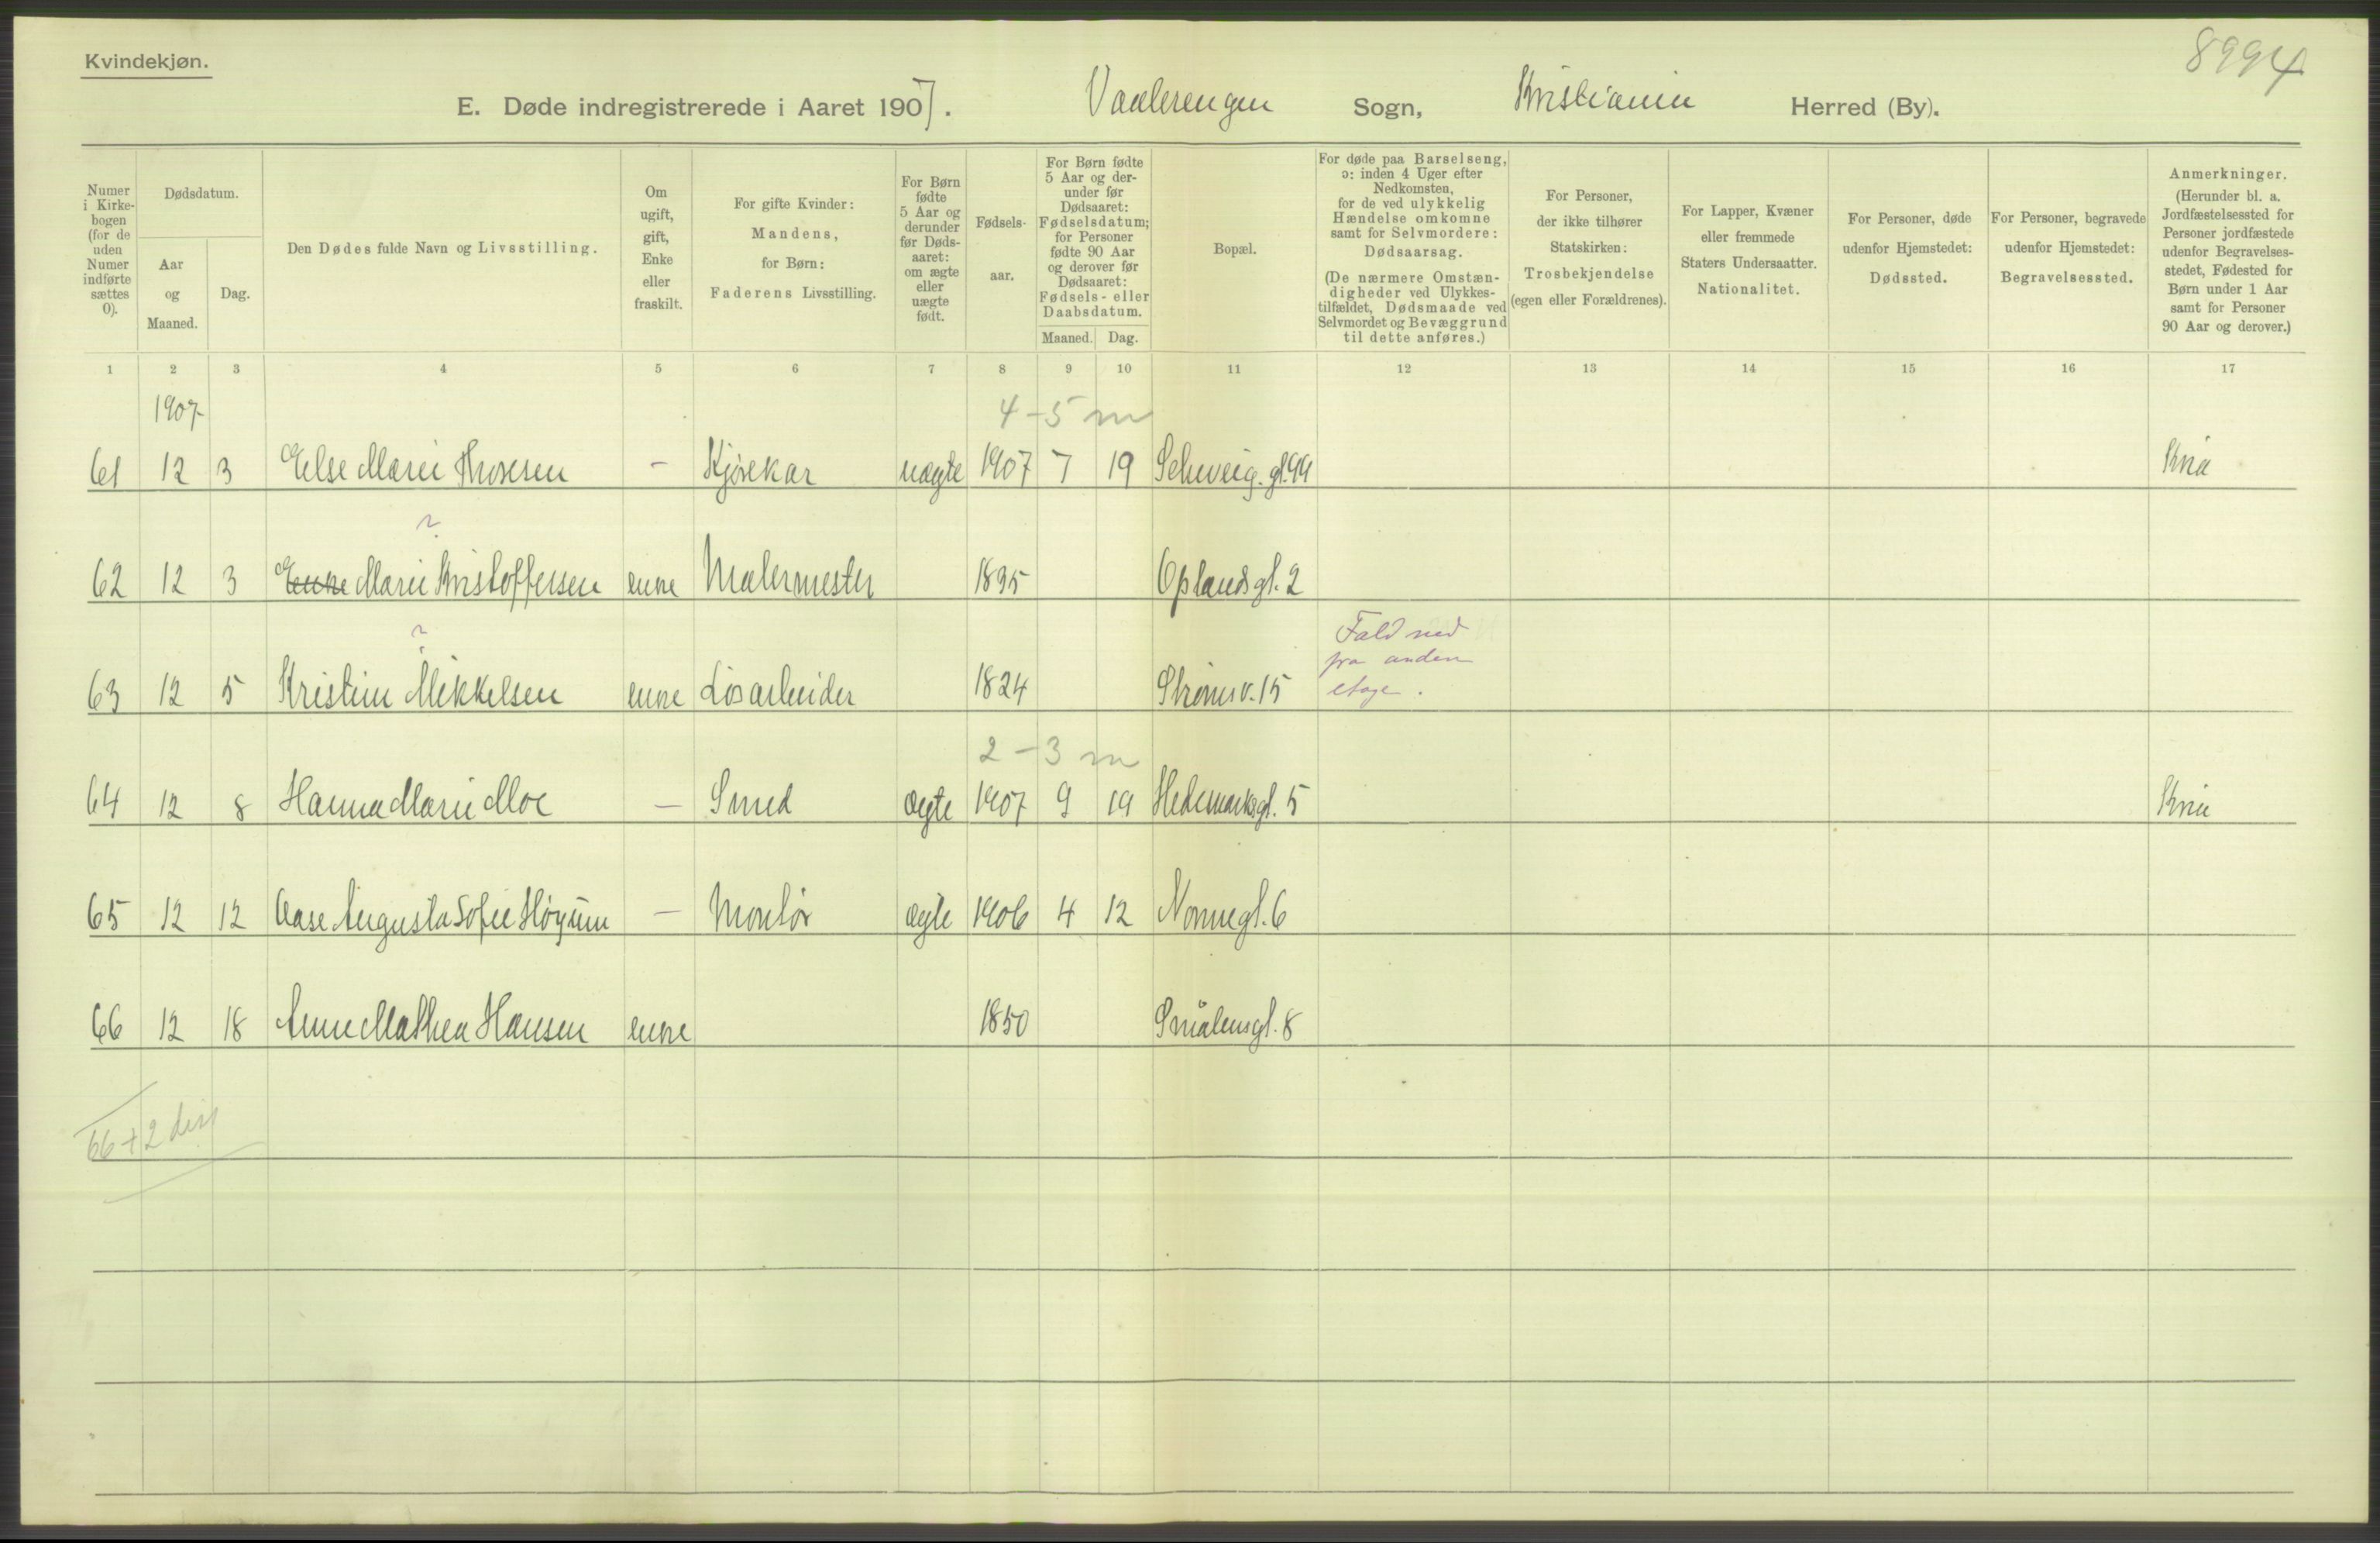 Kvindekjøn.
8994
E. Døde indregistrerede i Aaret 1907. Vaalerengen Sogn, Kristiania Herred (By).
Numer i Kirke-bogen (for de uden Numer indførte sættes 0).
Dødsdatum.
Aar og Maaned.
Dag.
Den Dødes fulde Navn og Livsstilling.
Om ugift, gift, Enke eller fraskilt.
For gifte Kvinder: Mandens, for Børn: Faderens Livsstilling.
For Børn fødte 5 Aar og derunder før Døds-aaret: om ægte eller uægte født.
Fødsels-aar.
For Børn fødte 5 Aar og der-under før Dødsaaret: Fødselsdatum; for Personer fødte 90 Aar og derover før Dødsaaret: Fødsels- eller Daabsdatum.
Maaned. Dag.
Bopæl.
For døde paa Barselseng, ɔ: inden 4 Uger efter Nedkomsten, for de ved ulykkelig Hændelse omkomne samt for Selvmordere: Dødsaarsag. (De nærmere Omstæn-digheder ved Ulykkes-tilfældet, Dødsmaade ved Selvmordet og Bevæggrund til dette anføres.)
For Personer, der ikke tilhører Statskirken: Trosbekjendelse (egen eller Forældrenes).
For Lapper, Kvæner eller fremmede Staters Undersaatter. Nationalitet.
For Personer, døde udenfor Hjemstedet: Dødssted.
For Personer, begravede udenfor Hjemstedet: Begravelsessted.
Anmerkninger. (Herunder bl. a. Jordfæstelsessted for Personer jordfæstede udenfor Begravelses-stedet, Fødested for Børn under 1 Aar samt for Personer 90 Aar og derover.)
1 2 3 4 5 6 7 8 9 10 11 12 13 14 15 16 17
1907 4-5 m
61 12 3 Else Marie Thoresen - Kjørekar uægte 1907 7 19 Schweig. gt. 99 Kria
?
62 12 3 Enke Marie Kristoffersen enke Malermester 1835 Oplandsgt. 2
?
63 12 5 Kristine Mikkelsen enke Løsarbeider 1824 Strømsv. 15 Fald ned fra anden etage.
2-3 m
64 12 8 Hanna Marie Moe - Smed ægte 1907 9 19 Hedemarksgt. 5 Kria
65 12 12 Aase Augusta Sofie Høyum - Montør ægte 1906 4 12 Nonnegt. 6
66 12 18 Anne Mathea Hansen enke 1850 Smålensgt. 8
66 + 2 diss